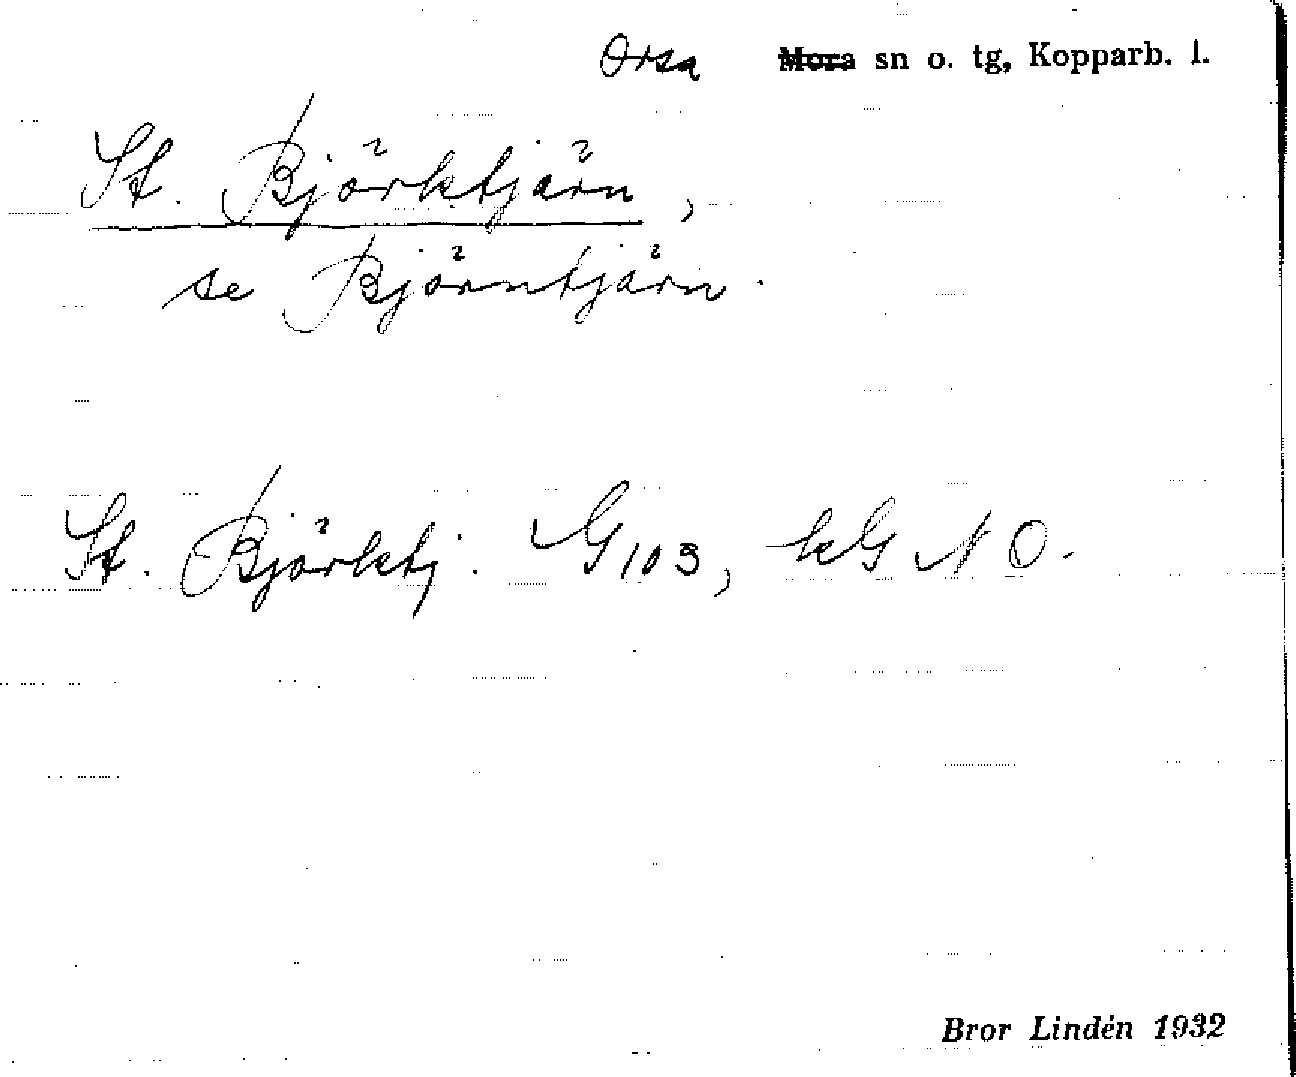 Orsa Mora sn o. tg, Kopparb. l.
St. Björktjärn,
se Björntjärn.
St. Björktj. G 103, kG NO.
Bror Lindén 1932